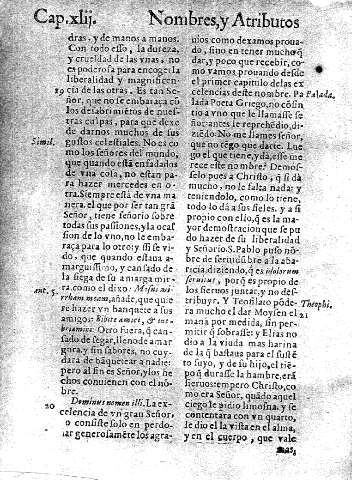 Cap. xlij. Nombres, y Atributos
dras, y de manos a manos.
Con todo esso, la dureza,
y crueldad de las vnas, no
es poderosa para encoger la
liberalidad y magnificen-
19 cia de las otras. Es tan Se
ñor, que no se embaraça cõ
los desabrimiẽtos de nues-
tras culpas, para que dexe
de darnos muchos de sus
Simil. gustos celestiales. No es co
mo los señores del mundo,
que quando està enfadados
de vna cosa, no estan pa-
ra hazer mercedes en o-
tra. Siempre està de vna ma
nera. el que por ser tan grã
Señor, tiene señorio sobre
todas sus passiones, y la oca
sion de lo vno, no le emba-
raça para lo otro; assi se vi-
do, que quando estaua a
marguissimo, y cansado de
la siega de su amarga mi-
ant. 5. rra. como el dixo: Messui mi
rrham meam, añade, que quie
re hazer vn banquete a sus
amigos: Bibite amici, & ine-
briamini. Otro fuera, q̃ can-
sado de segar, lleno de amar
gura, y sin sabores, no cuy-
dara de bãquetear a nadie;
pero al fin es Señor, y los he
chos conuienen con el nõ-
bre.
20 Dominus nomen illi. La ex-
celencia de vn gran Señor,
o consiste solo en perdo-
nar generosamẽte los agra-
uios como dexamos proua-
do, sino en tener mucho q̃
dar, y poco que recebir, co-
mo vamos prouando desde
el primer capitulo de las ex
celencias deste nombre. Pa Palada.
lada Poeta Griego, no cõsin
tio a vno que le llamasse se
ñor: antes le reprehẽdio, di-
ziẽdo: No me llames señor,
que no tẽgo que darte. Lue
go el que tiene, y dà, esse me
rece este nombre? Demos-
selo pues a Christo, q̃ si dà
mucho, no le falta nada: y
teniendolo, como lo tiene,
todo lo dà a sus fieles. y a si
proprio con ello, q̃ es la ma
yor demostracion que se pu
do hazer de su liberalidad
y Señorio. S. Pablo puso nõ
bre de seruidũbre a la aba-
ricia, diziendo, q̃ es idolorum
seruitus, porq̃ es proprio de
los sieruos juntar, y no des-
tribuyr. Y Teofilato põde- Theophi.
ra mucho el dar Moysen el 21
manà por medida, sin per-
mitir q̃ sobrasse: y Elias no
dio a la viuda mas harina
de la q̃ bastaua para el sustẽ
to suyo, y de su hijo, el tiẽ-
po q̃ durasse la hambre, erã
sieruos: tempero Christo, co
mo era Señor, quãdo aquel
ciego le pidio limosna, y se
contentara con vn quarto,
le dio el la vista en el alma,
y en el cuerpo, que vale
mas,